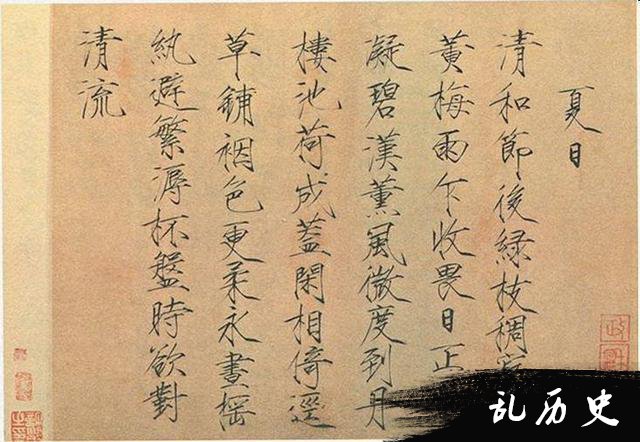 夏日
清和節後緑枝稠
黃梅雨乍收畏日正
凝碧漢薰風微度到丹
樓池荷成蓋閑相倚逕
草鋪裀色更柔永晝搖
紈避繁溽杯盤時欲對
清流
乱历史